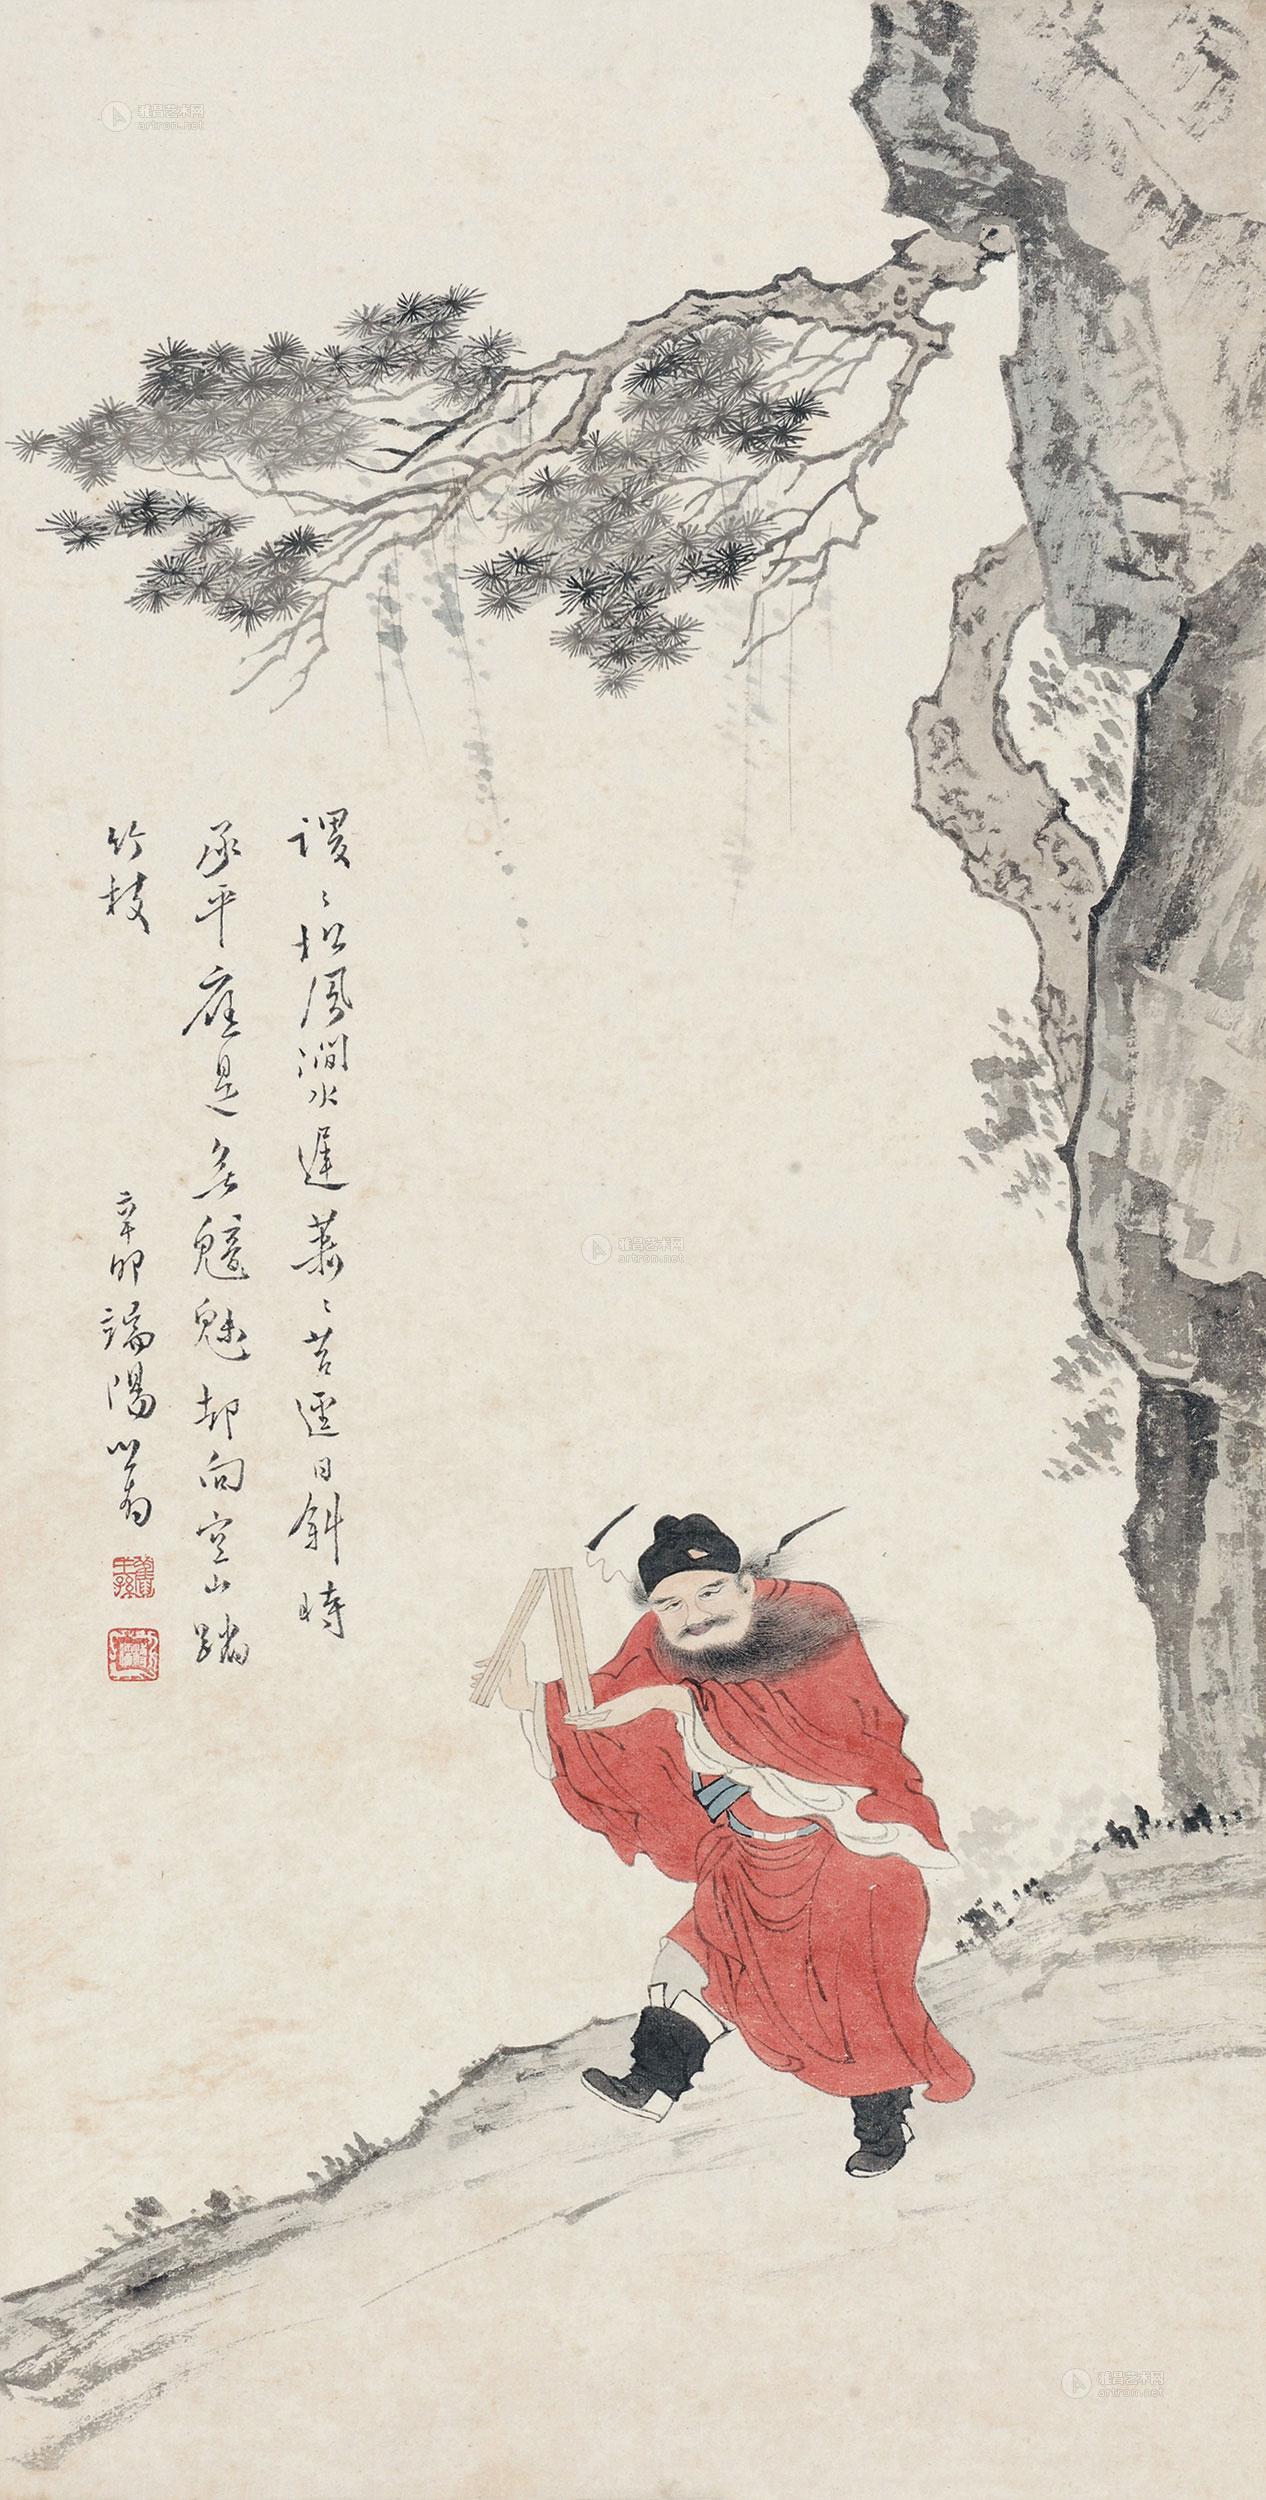 謖〻松風澗水遲蕭〻苔逕日斜時
承平應是無魑魅却向空山蹋
竹枝
辛卯端陽心畬
舊王孫
雅昌艺术网
artron.net
雅昌艺术网
artron.net
雅昌艺术网
artron.net